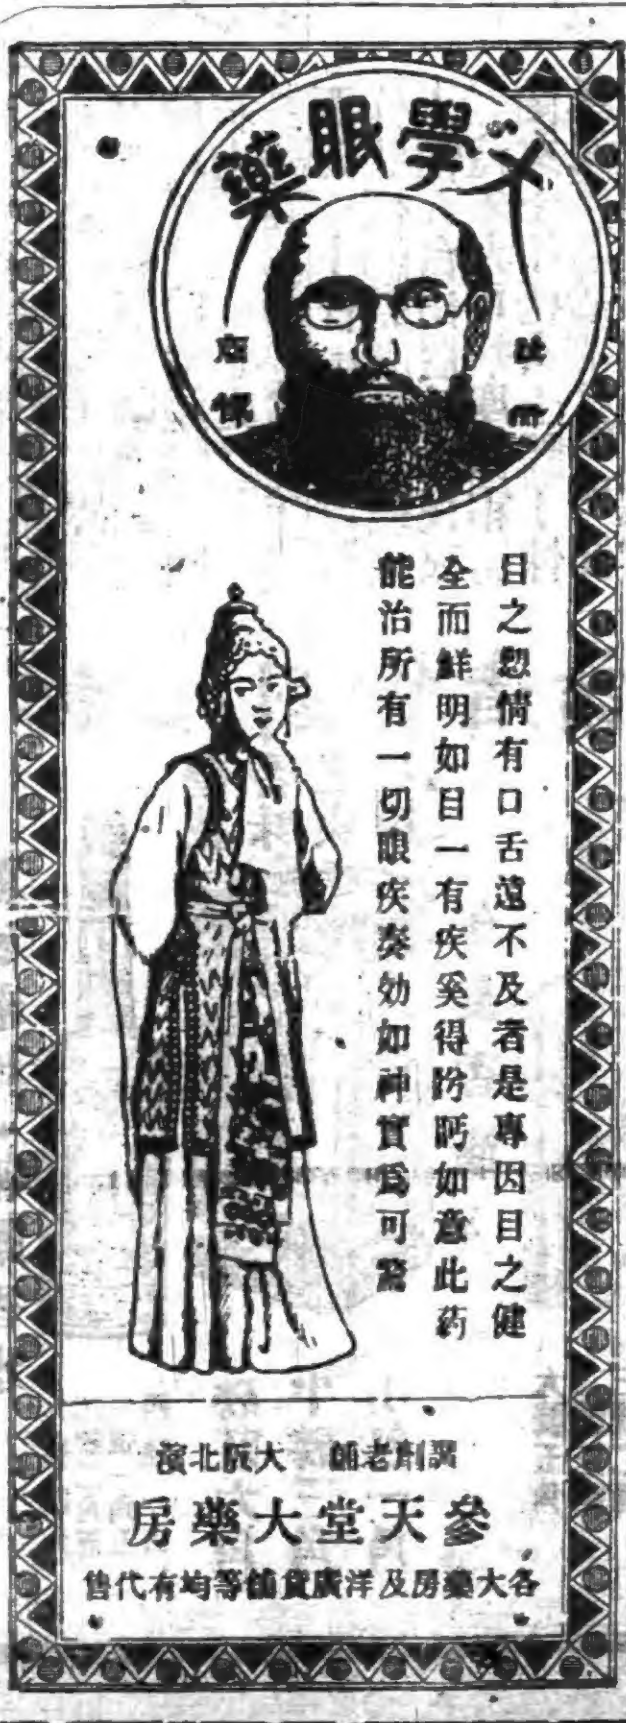 大學眼藥
目之愬情有口舌遠不及者是專因目之健
全而鮮明如目一有疾奚得盼眄如意此药
能治所有一切眼疾奏効如神實爲可驚
調劑老舖　大阪北濱
參天堂大藥房
各大藥房及洋廣貨舖等均有代售